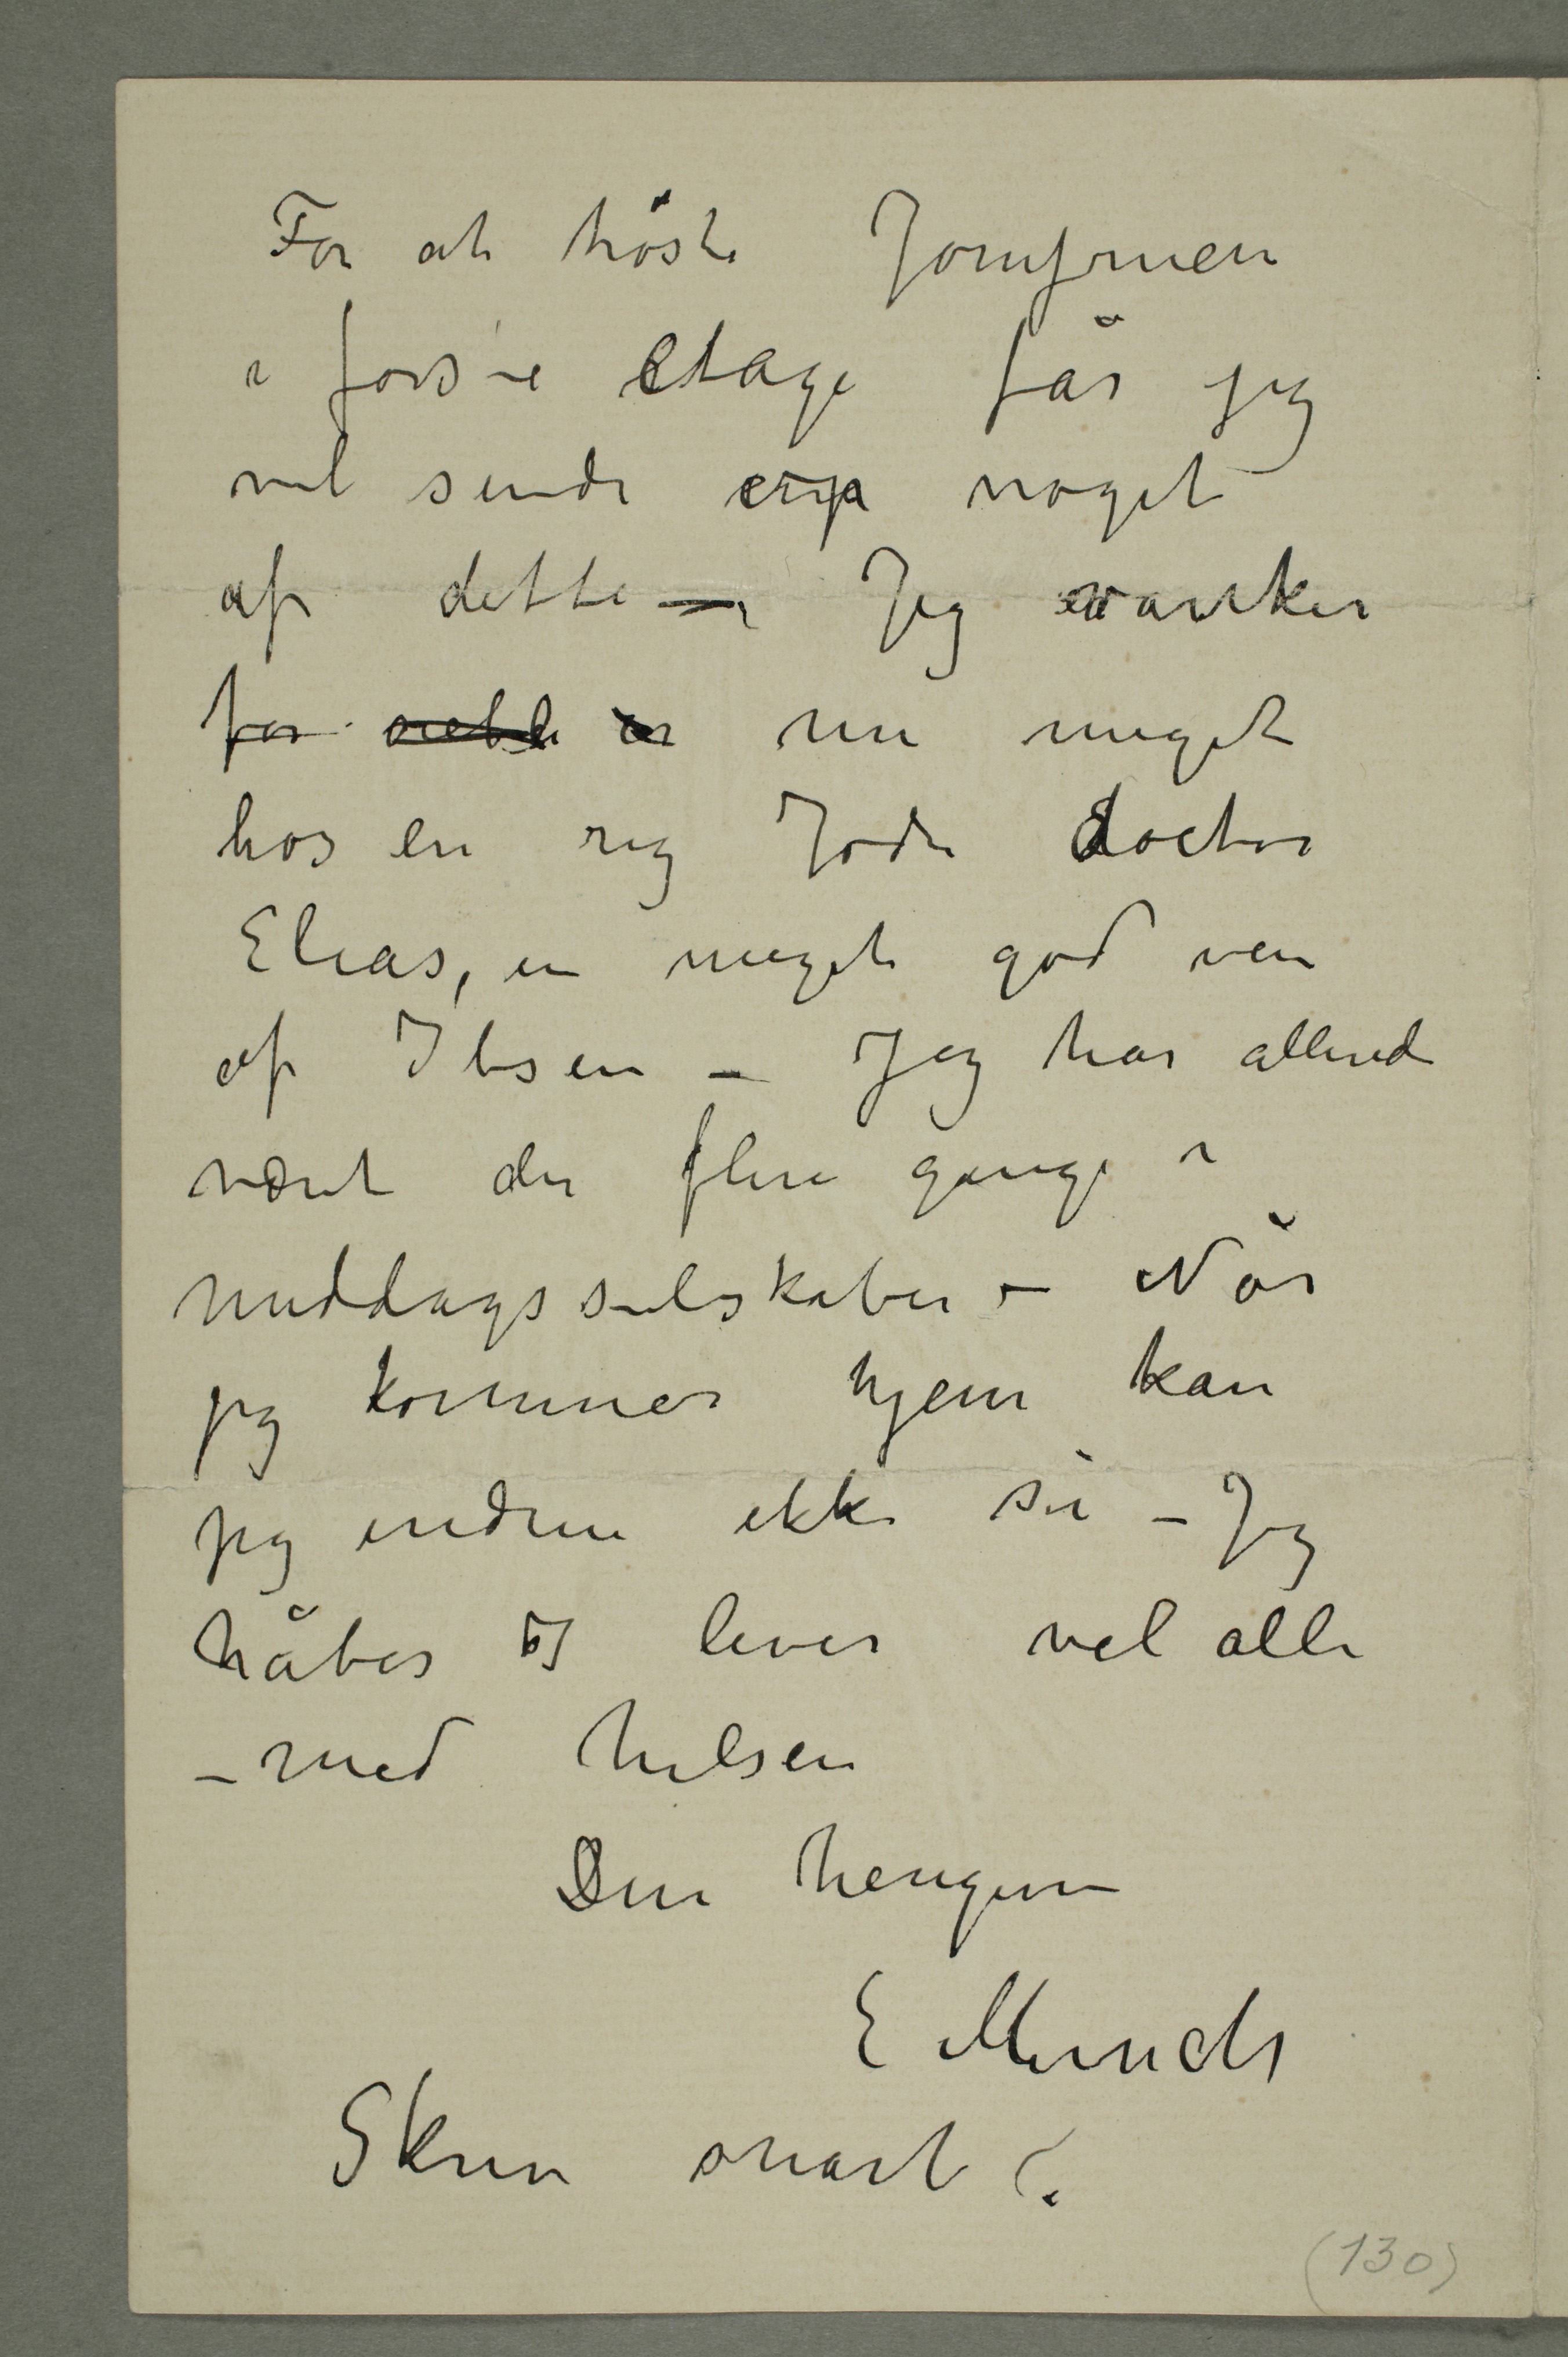 For at trøste Jomfruen
i første etage får jeg
vel sende noget
af dette – Jeg vanker
nu meget
hos en rig Jøde doctor
Elias, en meget god ven
af Ibsen – Jeg har allerede
været der flere gange i
middagsselskaber – Når
jeg kommer hjem kan
jeg endnu ikke si – Jeg
håber I lever vel alle
– med hilsen
Din hengivne
E Munch
Skriv snart!
(130)